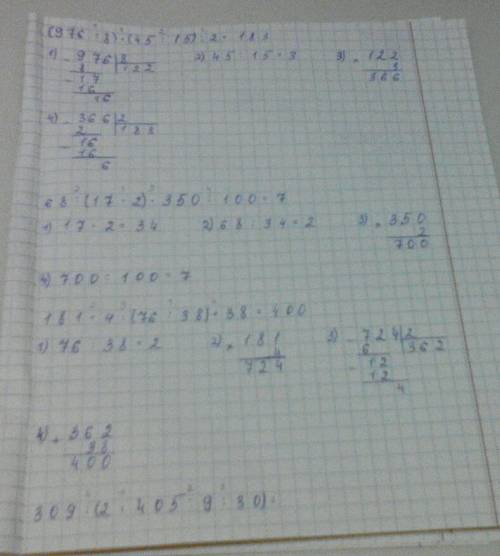 (976 : 8) · (45 : 15) : 2 = 183
1) - 976 | 8 2) 45 : 15 = 3 3) × 122
8 | 122 3
- 17 366
16
16
4) - 366 | 2
2 | 183
- 16
16
6
68 : (17 · 2) · 350 : 100 = 7
1) 17 · 2 = 34 2) 68 : 34 = 2 3) × 350
2
700
4) 700 : 100 = 7
181 · 4 : (76 : 38) + 38 = 400
1) 76 : 38 = 2 2) × 181 3) - 724 | 2
4 6 | 362
724 - 12
12
4
4) + 362
38
400
309 : (2 : 405 9 : 30) :